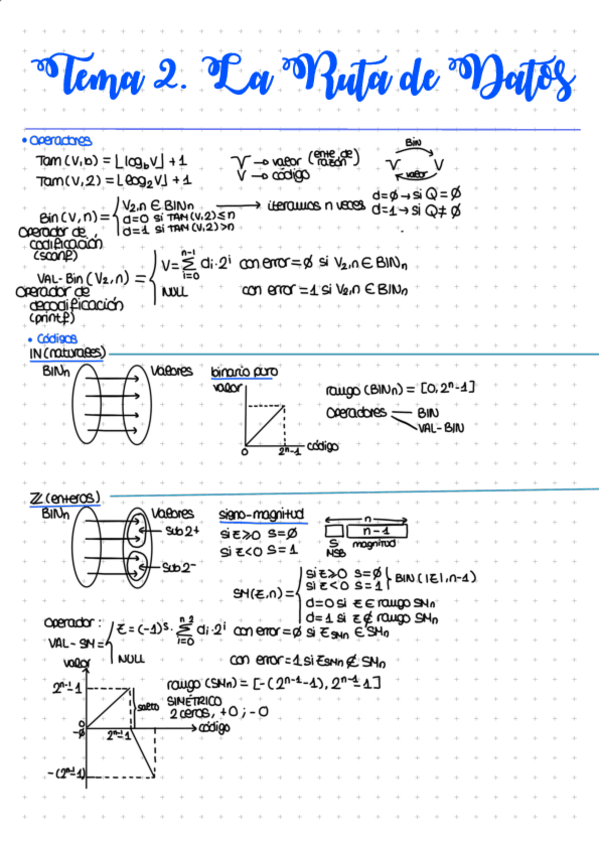 Tema 2. La Ruta de Datos
• Operadores
Tam(V,b) = ⌊log_b V⌋ + 1
Tam(V,2) = ⌊log₂V⌋ + 1
V → valor (ente de razón)
V → código
BIN
V V
valor
Bin(V,n) = { V₂,n ∈ BINn → iteramos n veces
d=0 si TAM(V,2)≤n
d=1 si TAM(V,2)>n
d=∅ → si Q=∅
d=1 → si Q≠∅
Operador de codificación (scanf)
VAL-Bin(V₂,n) = { V = Σ di·2^i con error=∅ si V₂,n ∈ BINn
n-1
i=0
NULL con error=1 si V₂,n ∈ BINn
Operador de decodificación (printf)
• Códigos
IN (naturales)
BINn Valores
binario puro
valor
0 2^n-1 código
rango (BINn) = [0, 2^n-1]
Operadores — BIN
VAL-BIN
ℤ (enteros)
BINn Valores
Sub2+
Sub2-
signo-magnitud
si z≥0 S=∅
si z<0 S=1
n
n-1
S magnitud
NSB
SM(z,n) = { si z≥0 S=∅
si z<0 S=1 } BIN(|z|,n-1)
d=0 si z ∈ rango SMn
d=1 si z ∉ rango SMn
Operador:
VAL-SM = { z = (-1)^s · Σ di·2^i con error=∅ si z_SMn ∈ SMn
n-2
i=0
NULL con error=1 si z_SMn ∉ SMn
valor
2^n-1-1
0
-∅
2^n-1-1
-(2^n-1-1)
salto
código
rango (SMn) = [-(2^n-1-1), 2^n-1-1]
SIMÉTRICO
2 ceros, +0; -0